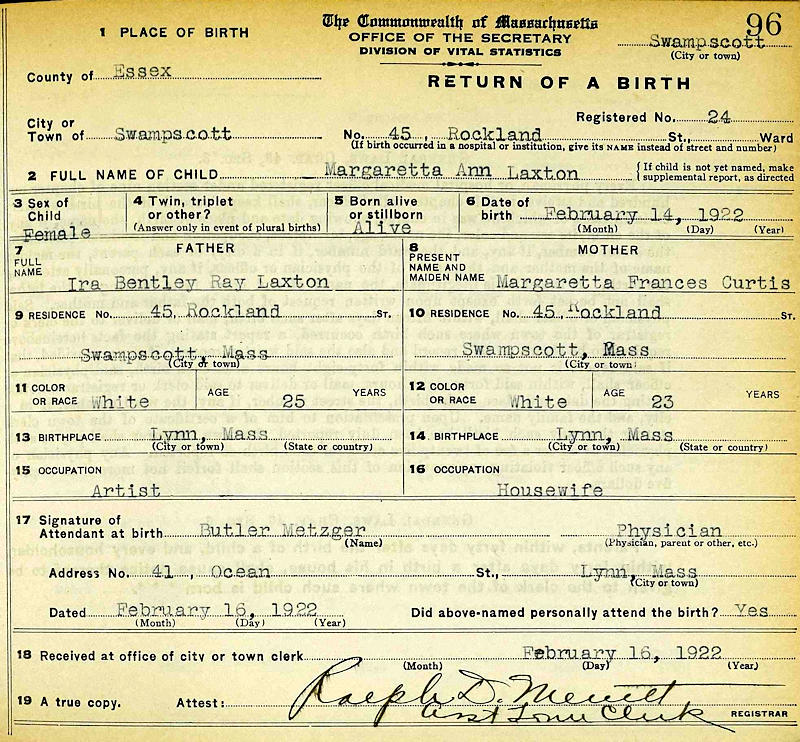 The Commonwealth of Massachusetts 96
OFFICE OF THE SECRETARY
DIVISION OF VITAL STATISTICS
1 PLACE OF BIRTH
Swampscott
(City or town)
County of Essex
RETURN OF A BIRTH
Registered No. 24
City or
Town of Swampscott No. 45, Rockland St., Ward
(If birth occurred in a hospital or institution, give its NAME instead of street and number)
2 FULL NAME OF CHILD Margaretta Ann Laxton {If child is not yet named, make
supplemental report, as directed
3 Sex of
Child
Female
4 Twin, triplet
or other?
(Answer only in event of plural births)
5 Born alive
or stillborn
Alive
6 Date of
birth February 14, 1922
(Month) (Day) (Year)
7 FATHER
FULL
NAME
Ira Bentley Ray Laxton
8 MOTHER
PRESENT
NAME AND
MAIDEN NAME Margaretta Frances Curtis
9 RESIDENCE No. 45, Rockland St.
Swampscott, Mass
(City or town)
10 RESIDENCE No. 45, Rockland St.
Swampscott, Mass
(City or town)
11 COLOR
OR RACE White AGE 25 YEARS
12 COLOR
OR RACE White AGE 23 YEARS
13 BIRTHPLACE Lynn, Mass
(City or town) (State or country)
14 BIRTHPLACE Lynn, Mass
(City or town) (State or country)
15 OCCUPATION
Artist
16 OCCUPATION
Housewife
17 Signature of
Attendant at birth Butler Metzger Physician
(Name) (Physician, parent or other, etc.)
Address No. 41, Ocean St., Lynn, Mass
(City or town)
Dated February 16, 1922 Did above-named personally attend the birth? Yes
(Month) (Day) (Year)
18 Received at office of city or town clerk February 16, 1922
(Month) (Day) (Year)
19 A true copy. Attest: Ralph D. Merritt
Asst Town Clerk REGISTRAR